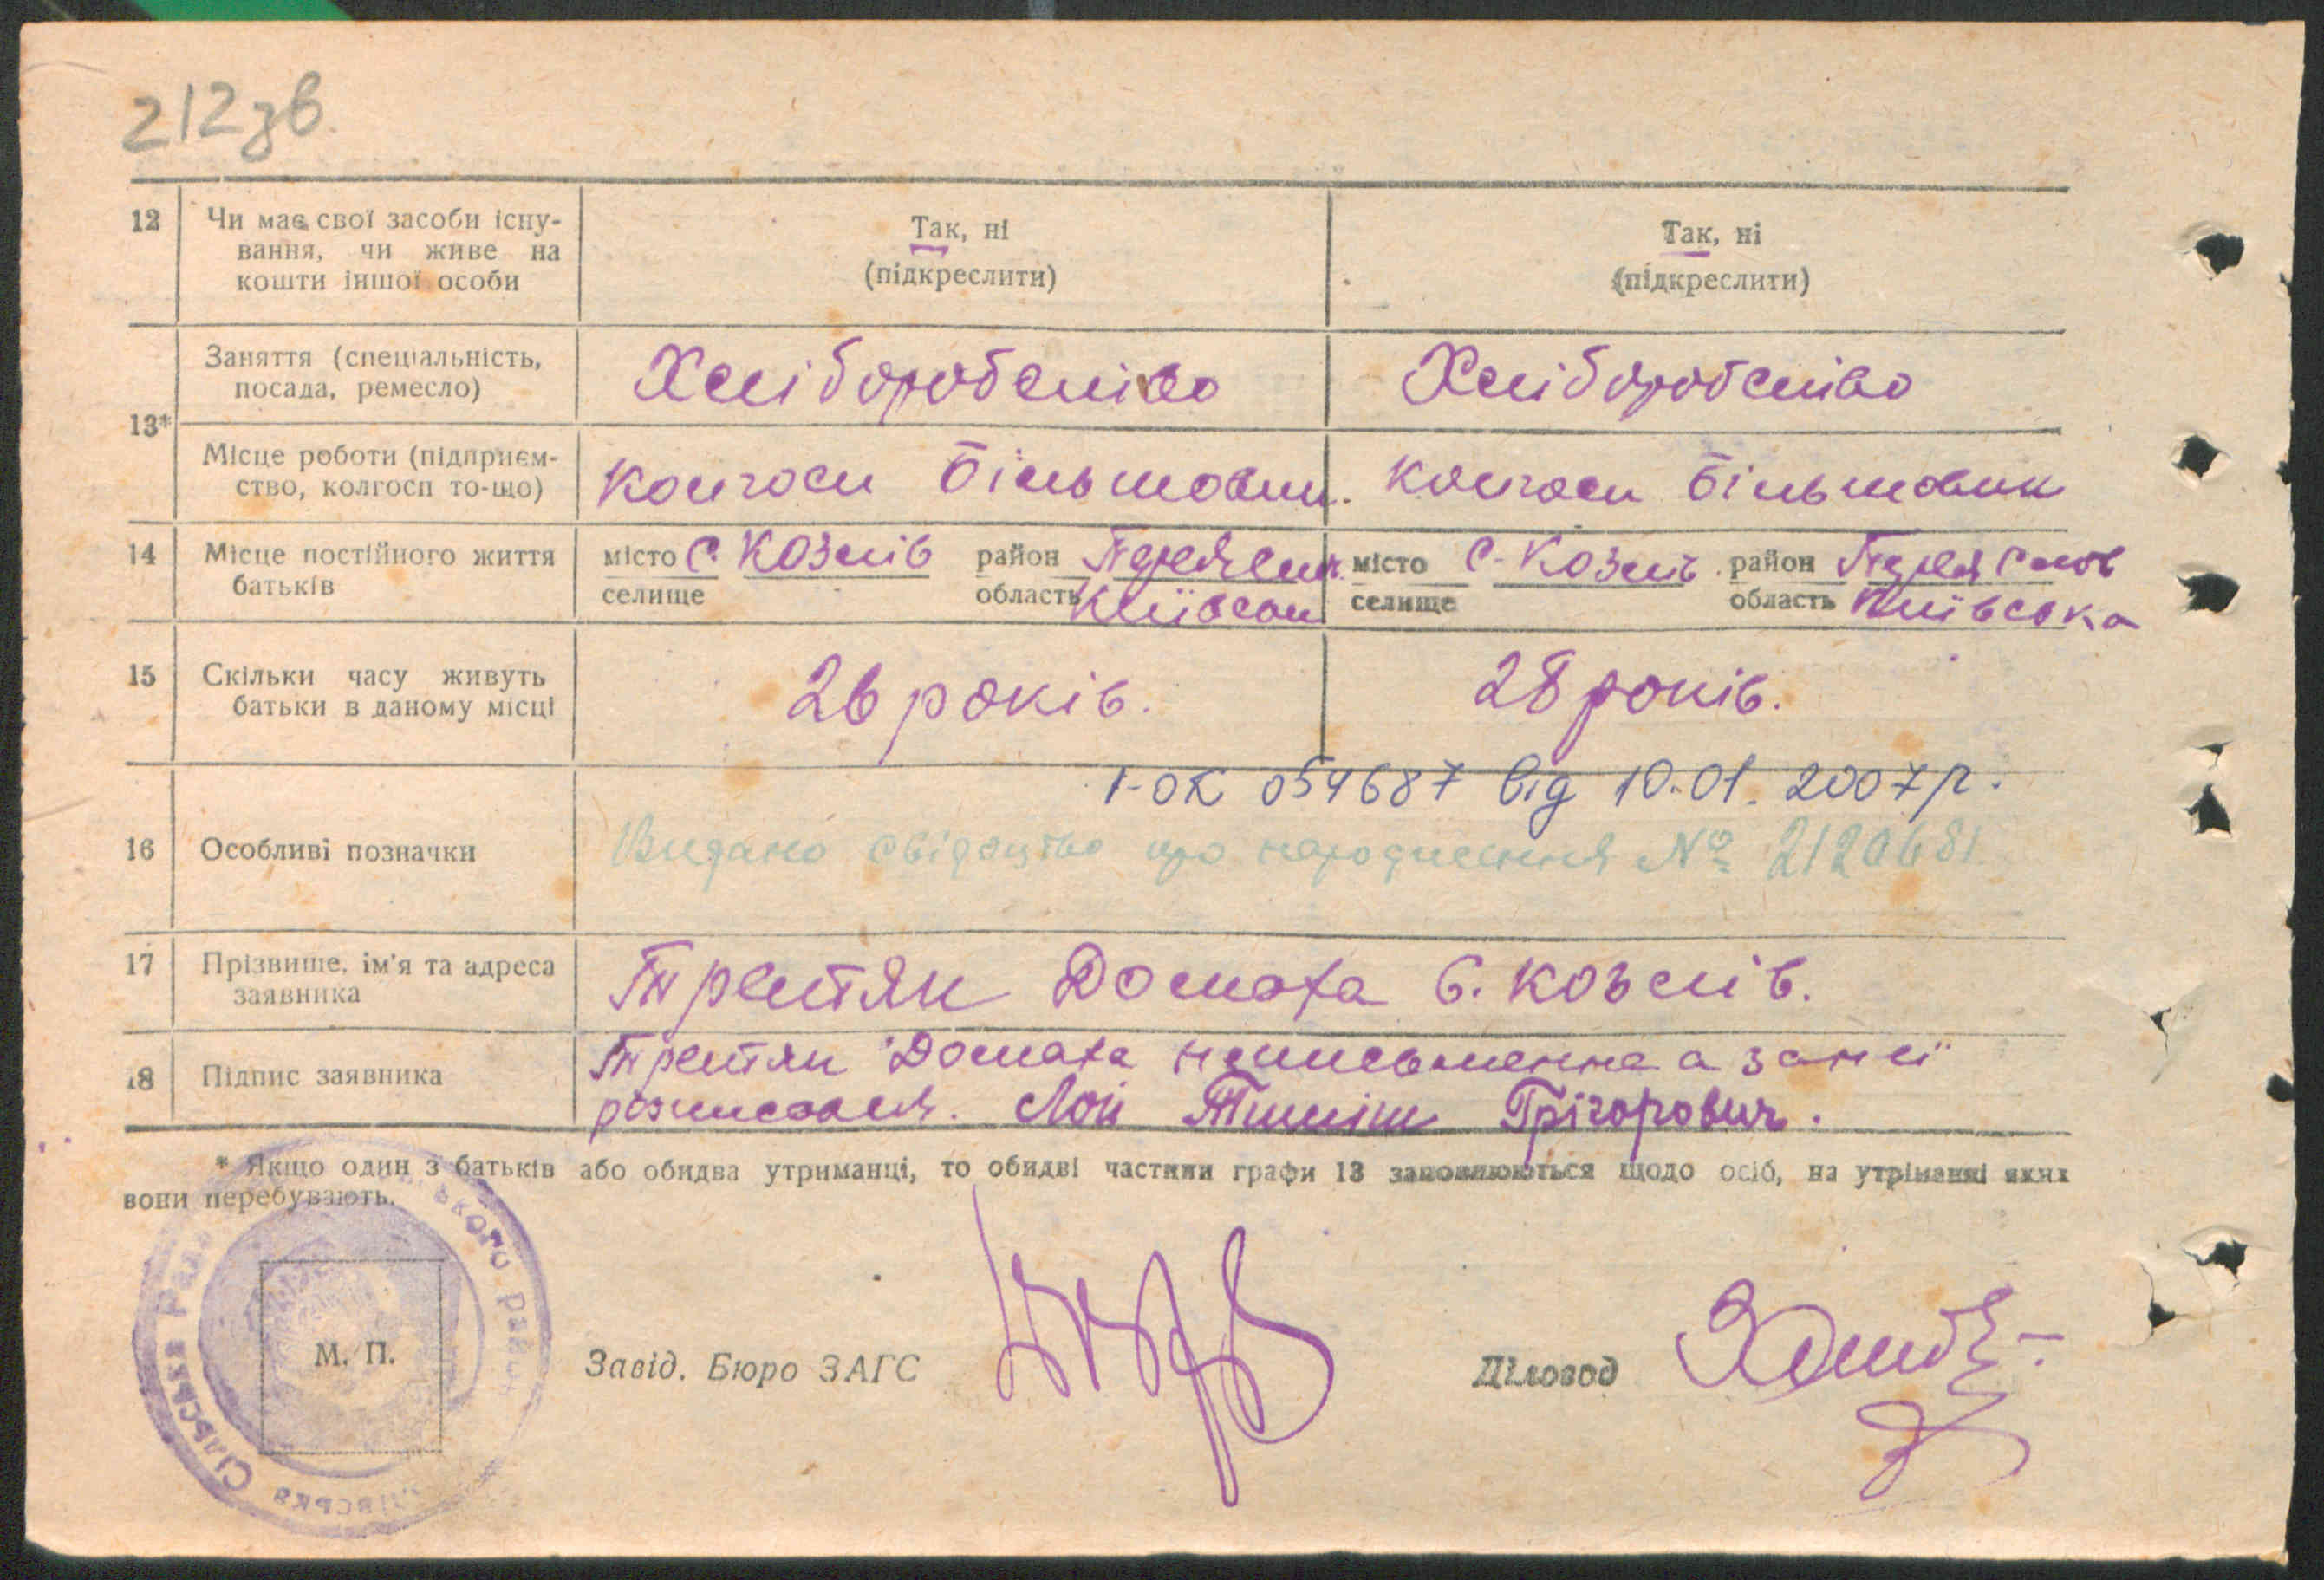 212зв
12 Чи має свої засоби існу-
вання, чи живе на
кошти іншої особи
Так, ні
(підкреслити)
Так, ні
(підкреслити)
13*
Заняття (спеціальність,
посада, ремесло)
Хліборобслтво
Хліборобслтво
Місце роботи (підприєм-
ство, колгосп то-що)
колгосп Більшовик.
колгосп Більшовик
14 Місце постійного життя
батьків
місто с. Козлів район Переяслів.
селище область Київськ
місто с. Козлів район Переяслов
селище область Київська
15 Скільки часу живуть
батьки в даному місці
26 років.
28 років.
16 Особливі позначки
І-ОК 054687 від 10.01.2007р.
Видано свідоцтво про народження № 2120681
17 Прізвище, ім'я та адреса
заявника
Третяк Домаха с. Козлів.
18 Підпис заявника
Третяк Домаха неписьменна а за неї
розписався. Лой Григорович.
* Якщо один з батьків або обидва утриманці, то обидві частини графи 13 заповнюються щодо осіб, на утріманні яких
вони перебувають.
М. П.
Завід. Бюро ЗАГС
Діловод
Сільська Рада
ського райо